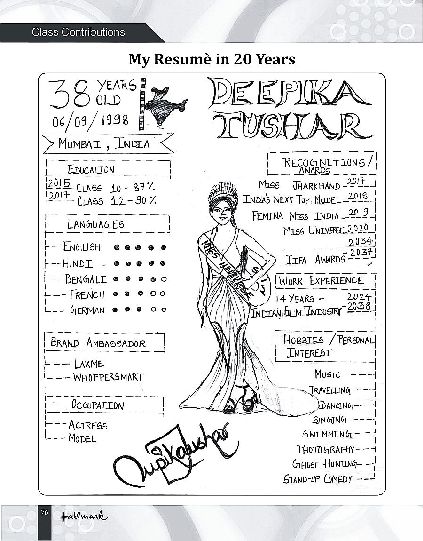 Class Contributions
My Resumè in 20 Years
38 YEARS OLD
06/09/1998
MUMBAI, INDIA
DEEPIKA
TUSHAR
EDUCATION
2015 CLASS 10 - 87%
2017 CLASS 12 - 90%
LANGUAGES
ENGLISH
HINDI
BENGALI
FRENCH
GERMAN
BRAND AMBASSADOR
LAXME
WHOPPERSMART
OCCUPATION
ACTRESS
MODEL
RECOGNITIONS/
AWARDS
MISS JHARKHAND 2017
INDIA'S NEXT TOP MODEL 2018
FEMINA MISS INDIA 2019
MISS UNIVERSE 2020
2034
IIFA AWARDS 2037
WORK EXPERIENCE
14 YEARS - 2024
INDIAN FILM INDUSTRY 2038
HOBBIES / PERSONAL
INTEREST
MUSIC
TRAVELLING
DANCING
SINGING
SWIMMING
PHOTOGRAPHY
GHOST HUNTING
STAND-UP COMEDY
MISS
Hallmark